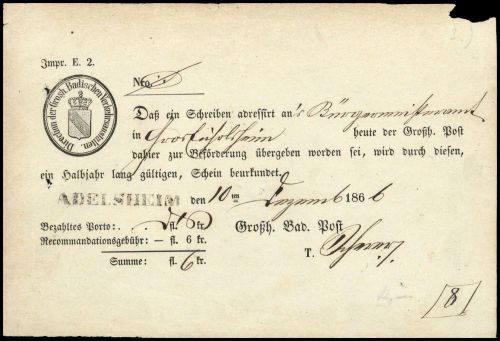 Impr. E. 2.
Direction der Grosh. Badischen Verkehrsanstalten.
Nro.
Daß ein Schreiben addressirt an's Bürgermeisteramt
in Großeicholzheim heute der Großh. Post
dahier zur Beförderung übergeben worden sei, wird durch diesen,
ein Halbjahr lang gültigen, Schein beurkundet.
ADELSHEIM den 10ten Dezemb 1866
Bezahltes Porto: fl. kr.
Recommandationsgebühr: — fl. 6 kr.
Summe: fl. 6 kr.
Großh. Bad. Post
T.
8